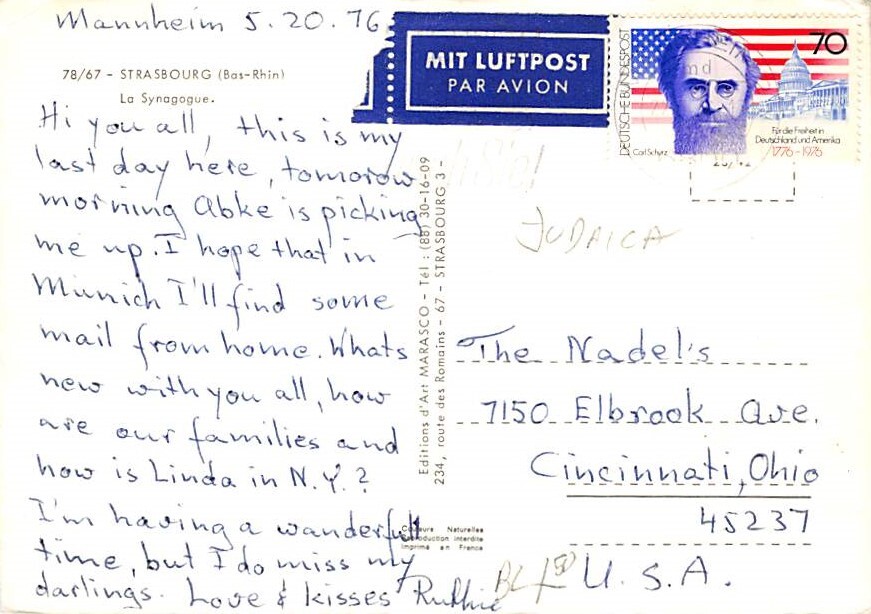 Mannheim 5.20.76
78/67 - STRASBOURG (Bas-Rhin)
La Synagogue.
Hi you all, this is my
last day here, tomorow
morning Abke is picking
me up. I hope that in
Munich I'll find some
mail from home. Whats
new with you all, how
are our families and
how is Linda in N.Y.?
I'm having a wanderfull
time, but I do miss my
darlings. Love & kisses Ruthie
MIT LUFTPOST
PAR AVION
DEUTSCHE BUNDESPOST
70
Carl Schurz
Für die Freiheit in
Deutschland und Amerika
1776-1976
JUDAICA
Editions d'Art MARASCO - Tél : (88) 30-16-09
234, route des Romains - 67 - STRASBOURG 3 -
The Nadel's
7150 Elbrook Ave.
Cincinnati, Ohio
45237
U.S.A.
Couleurs Naturelles
Reproduction interdite
Imprimé en France